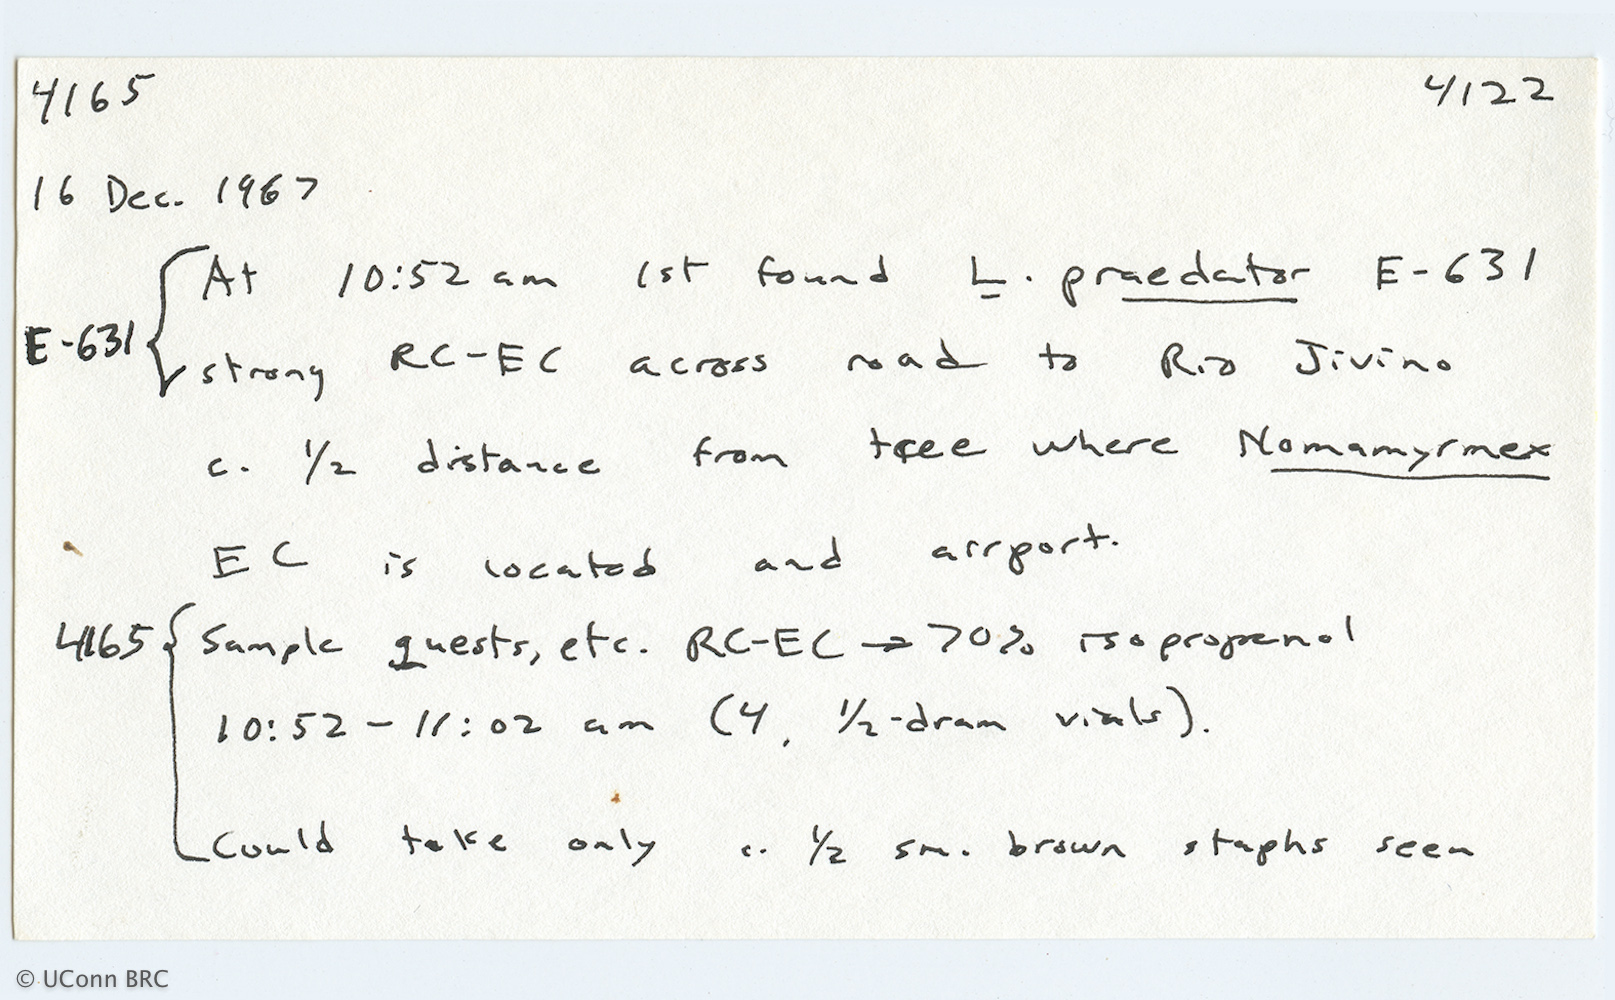 4165 4122
16 Dec. 1967
At 10:52 am 1st found L. praedator E-631
E-631 strong RC-EC across road to Rio Jivino
c. 1/2 distance from tree where Nomamyrmex
EC is located and airport.
4165 Sample guests, etc. RC-EC → 70% isopropanol
10:52 - 11:02 am (4, 1/2-dram vials).
Could take only c. 1/2 sm. brown staphs seen
© UConn BRC